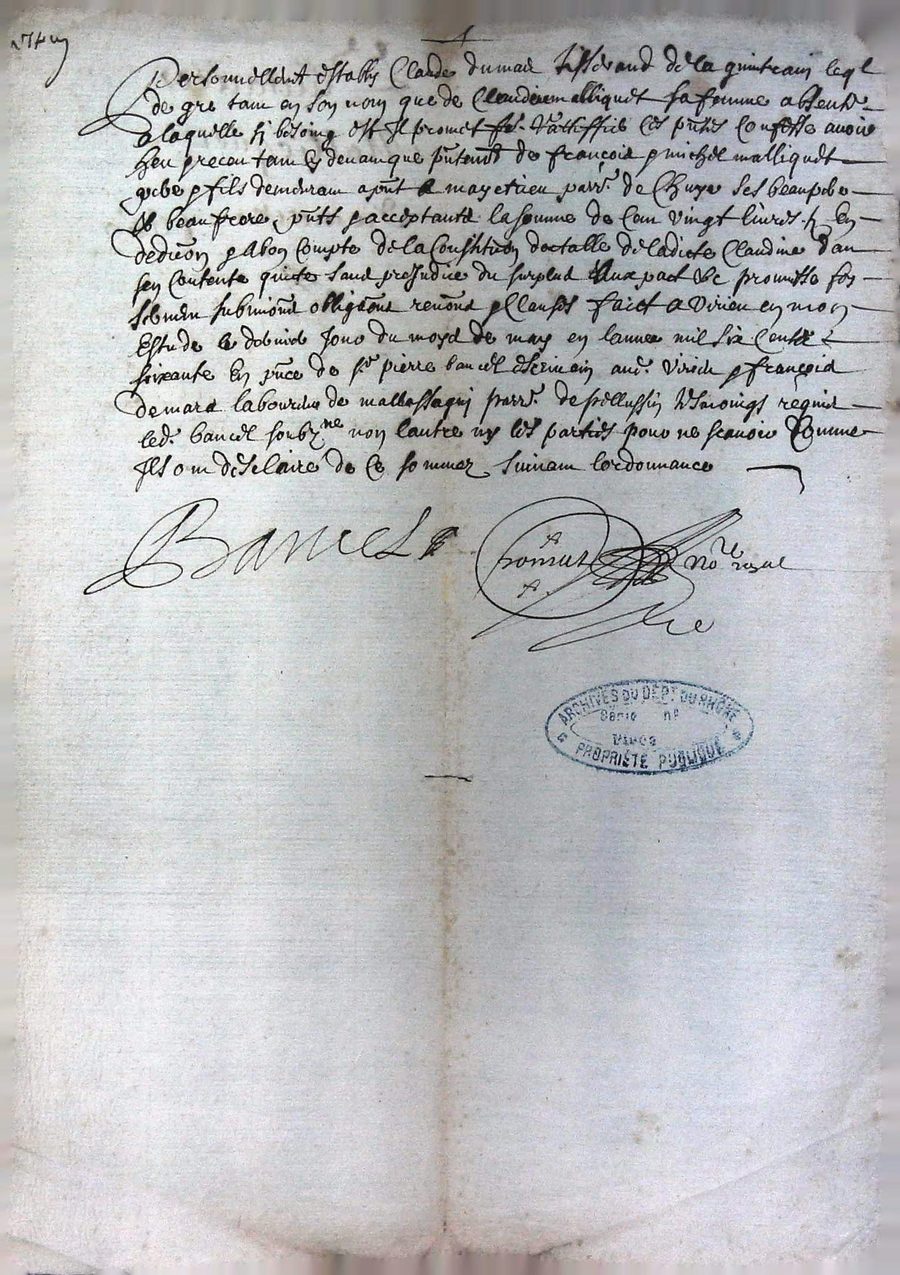 Personnellent estably Claude dumas tisserand de la leql
de gre tam en son nom que de Claudine malliquet sa femme absente
a laquelle sy besoing est Il promet fe. Rattiffie ces pntes Confesse avoir
heu receu tam cy devam que pntemt de françois & michel malliquet
pere & fils demeuram apnt a parr. de Chuye ses beaupere
& beaufrere pnts & acceptants la somme de Cem vingt livres tz En
dedcon & a bon Compte de la Constition dotalle de ladicte Claudine dam
sen Contente quicte sans prejudice du surplus Aux pact &c promisse
submons obligaons renons & Clauses faict a virieu en mon
Estude le dernier Jour du moys de may en lannee mil six Centz
soixante En pnce de sr pierre bancel escrivain aud. virieu & françois
demars laboureur de parr. de pellussin tesmoings requis
led. bancel soubzne non lautre ny les parties pour ne scavoir Comme
Ils om desclaire de Ce sommez suivam lordonnance
Bancel
No.re royal
ARCHIVES DU DEPT DU RHÔNE
Série n°
PROPRIÉTÉ PUBLIQUE